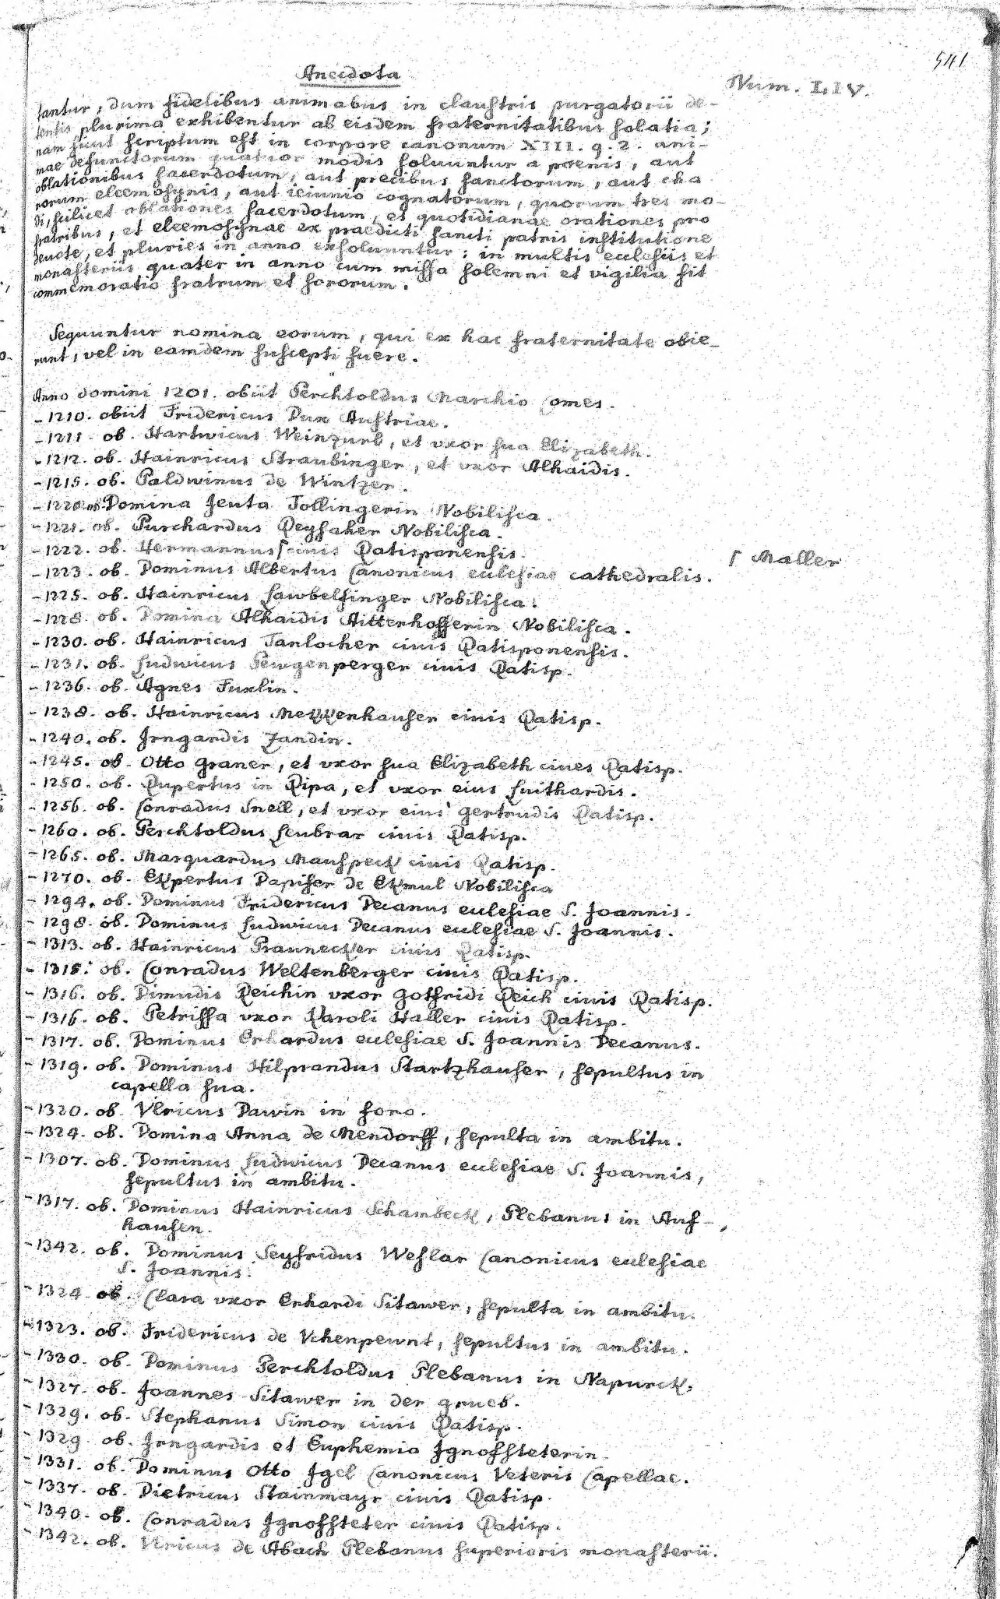 541
Anecdota
Num. LIV.
tantur, dum fidelibus animabus in claustris purgatorii de-
tentis plurima exhibentur ab eisdem fraternitatibus solatia;
nam sicut scriptum est in corpore canonum XIII. q. 2. ani-
mae defunctorum quatuor modis solvuntur a poenis, aut
oblationibus sacerdotum, aut precibus sanctorum, aut cha
rorum eleemosynis, aut ieiunio cognatorum, quorum tres mo-
di, scilicet oblationes sacerdotum, et quotidianae orationes pro
fratribus, et eleemosynae ex praedicti sancti patris institutione
devote, et pluries in anno exsolvuntur: in multis ecclesiis et
monasteriis quater in anno cum missa solemni et vigilia fit
commemoratio fratrum et sororum.
Sequuntur nomina eorum, qui ex hac fraternitate obie-
runt, vel in eamdem suscepti fuere.
Anno domini 1201. obiit Perchtoldus Marchio Comes.
- 1210. obiit Fridericus Dux Austriae.
- 1211. ob. Hartwicus Weinzurl, et uxor sua Elizabeth.
- 1212. ob. Hainricus Straubinger, et uxor Alhaidis.
- 1215. ob. Paldwinus de Wintzer.
- 1220. ob. Domina Jeuta Tollingerin Nobilista.
- 1221. ob. Purchardus Reysaher Nobilista.
- 1222. ob. Hermannus ſ civis Ratisponensis.
ſ Maller
- 1223. ob. Dominus Albertus Canonicus ecclesiae cathedralis.
- 1225. ob. Hainricus Sawbelfinger Nobilista.
- 1228. ob. Domina Alhaidis Aitterhofferin Nobilista.
- 1230. ob. Hainricus Tanlocher civis Ratisponensis.
- 1231. ob. Ludwicus Pewgenperger civis Ratisp.
- 1236. ob. Agnes Fuxlin.
- 1238. ob. Hainricus Mekkenhauser civis Ratisp.
- 1240. ob. Irngardis Zandin.
- 1245. ob. Otto Graner, et uxor sua Elizabeth cives Ratisp.
- 1250. ob. Rupertus in Ripa, et uxor eius Luithardis.
- 1256. ob. Conradus Snell, et uxor eius Gertrudis Ratisp.
- 1260. ob. Perchtoldus Scubrar civis Ratisp.
- 1265. ob. Marquardus Mauspeck civis Ratisp.
- 1270. ob. Ekpertus Dapifer de Ekmul Nobilista
- 1294. ob. Dominus Fridericus Decanus ecclesiae S. Joannis.
- 1298. ob. Dominus Ludwicus Decanus ecclesiae S. Joannis.
- 1313. ob. Hainricus Prannecker civis Ratisp.
- 1315. ob. Conradus Weltenberger civis Ratisp.
- 1316. ob. Dimudis Reichin uxor Gotfridi Reich civis Ratisp.
- 1316. ob. Petrissa uxor Karoli Haller civis Ratisp.
- 1317. ob. Dominus Erhardus ecclesiae S. Joannis Decanus.
- 1319. ob. Dominus Hilprandus Startzhauser, sepultus in
capella sua.
- 1320. ob. Ulricus Dawin in foro.
- 1324. ob. Domina Anna de Mendorff, sepulta in ambitu.
- 1307. ob. Dominus Ludwicus Decanus ecclesiae S. Joannis,
sepultus in ambitu.
- 1317. ob. Dominus Hainricus Schambeck, Plebanus in Auf-
hausen.
- 1342. ob. Dominus Seyfridus Weslar Canonicus ecclesiae
S. Joannis.
- 1324. ob. Clara uxor Erhardi Sitawer, sepulta in ambitu.
- 1323. ob. Fridericus de Vchenpewnt, sepultus in ambitu.
- 1330. ob. Dominus Perchtoldus Plebanus in Napurck,
- 1327. ob. Joannes Sitawer in der grueb.
- 1329. ob. Stephanus Simon civis Ratisp.
- 1329. ob. Irngardis et Euphemia Ignofsteterin.
- 1331. ob. Dominus Otto Igel Canonicus Veteris Capellae.
- 1337. ob. Dietricus Stainmayr civis Ratisp.
- 1340. ob. Conradus Ignofsteter civis Ratisp.
- 1342. ob. Ulricus de Abach Plebanus superioris monasterii.